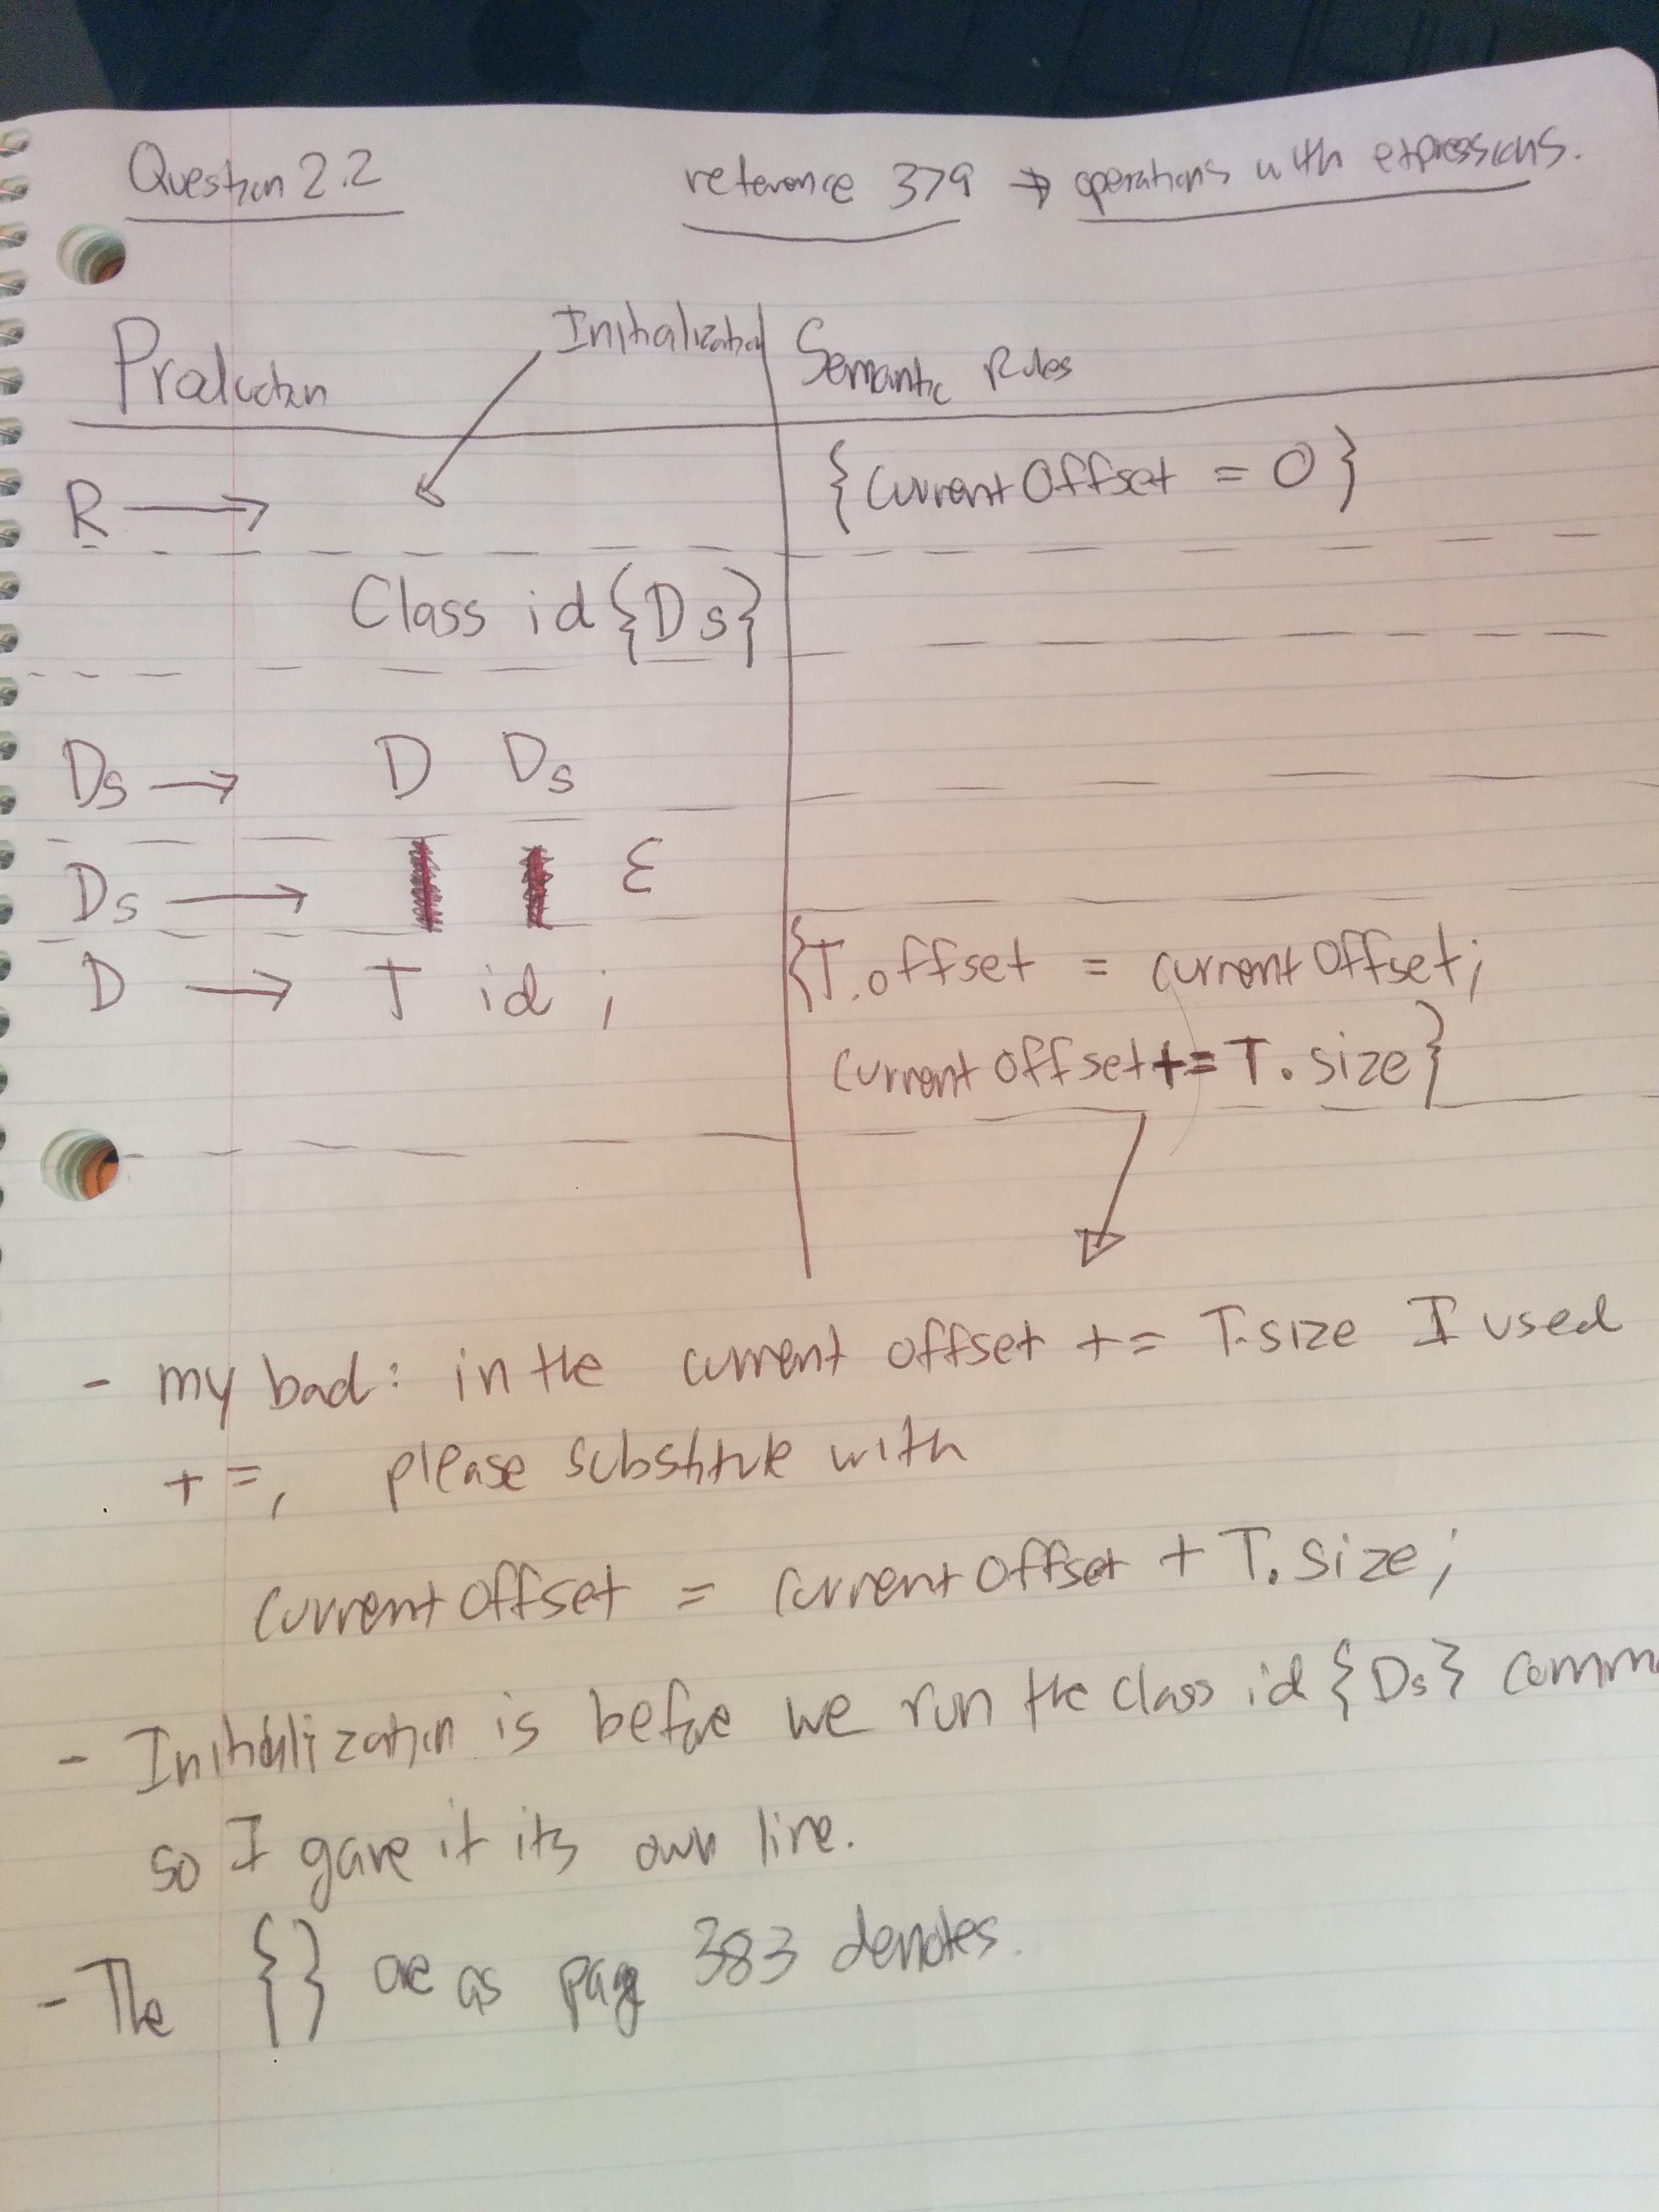 Question 2.2 reference 379 → operations with expressions.
Initialization
Production Semantic Rules
R → {currentOffset = 0}
Class id {Ds}
Ds → D Ds
Ds → ε
D → T id ; {T.offset = currentOffset;
currentOffset += T.size}
- my bad: in the current offset += T.size I used
+=, please substitute with
currentOffset = currentOffset + T.size;
- Initialization is before we run the class id {Ds} comm
so I gave it its own line.
- The {} are as page 383 denotes.